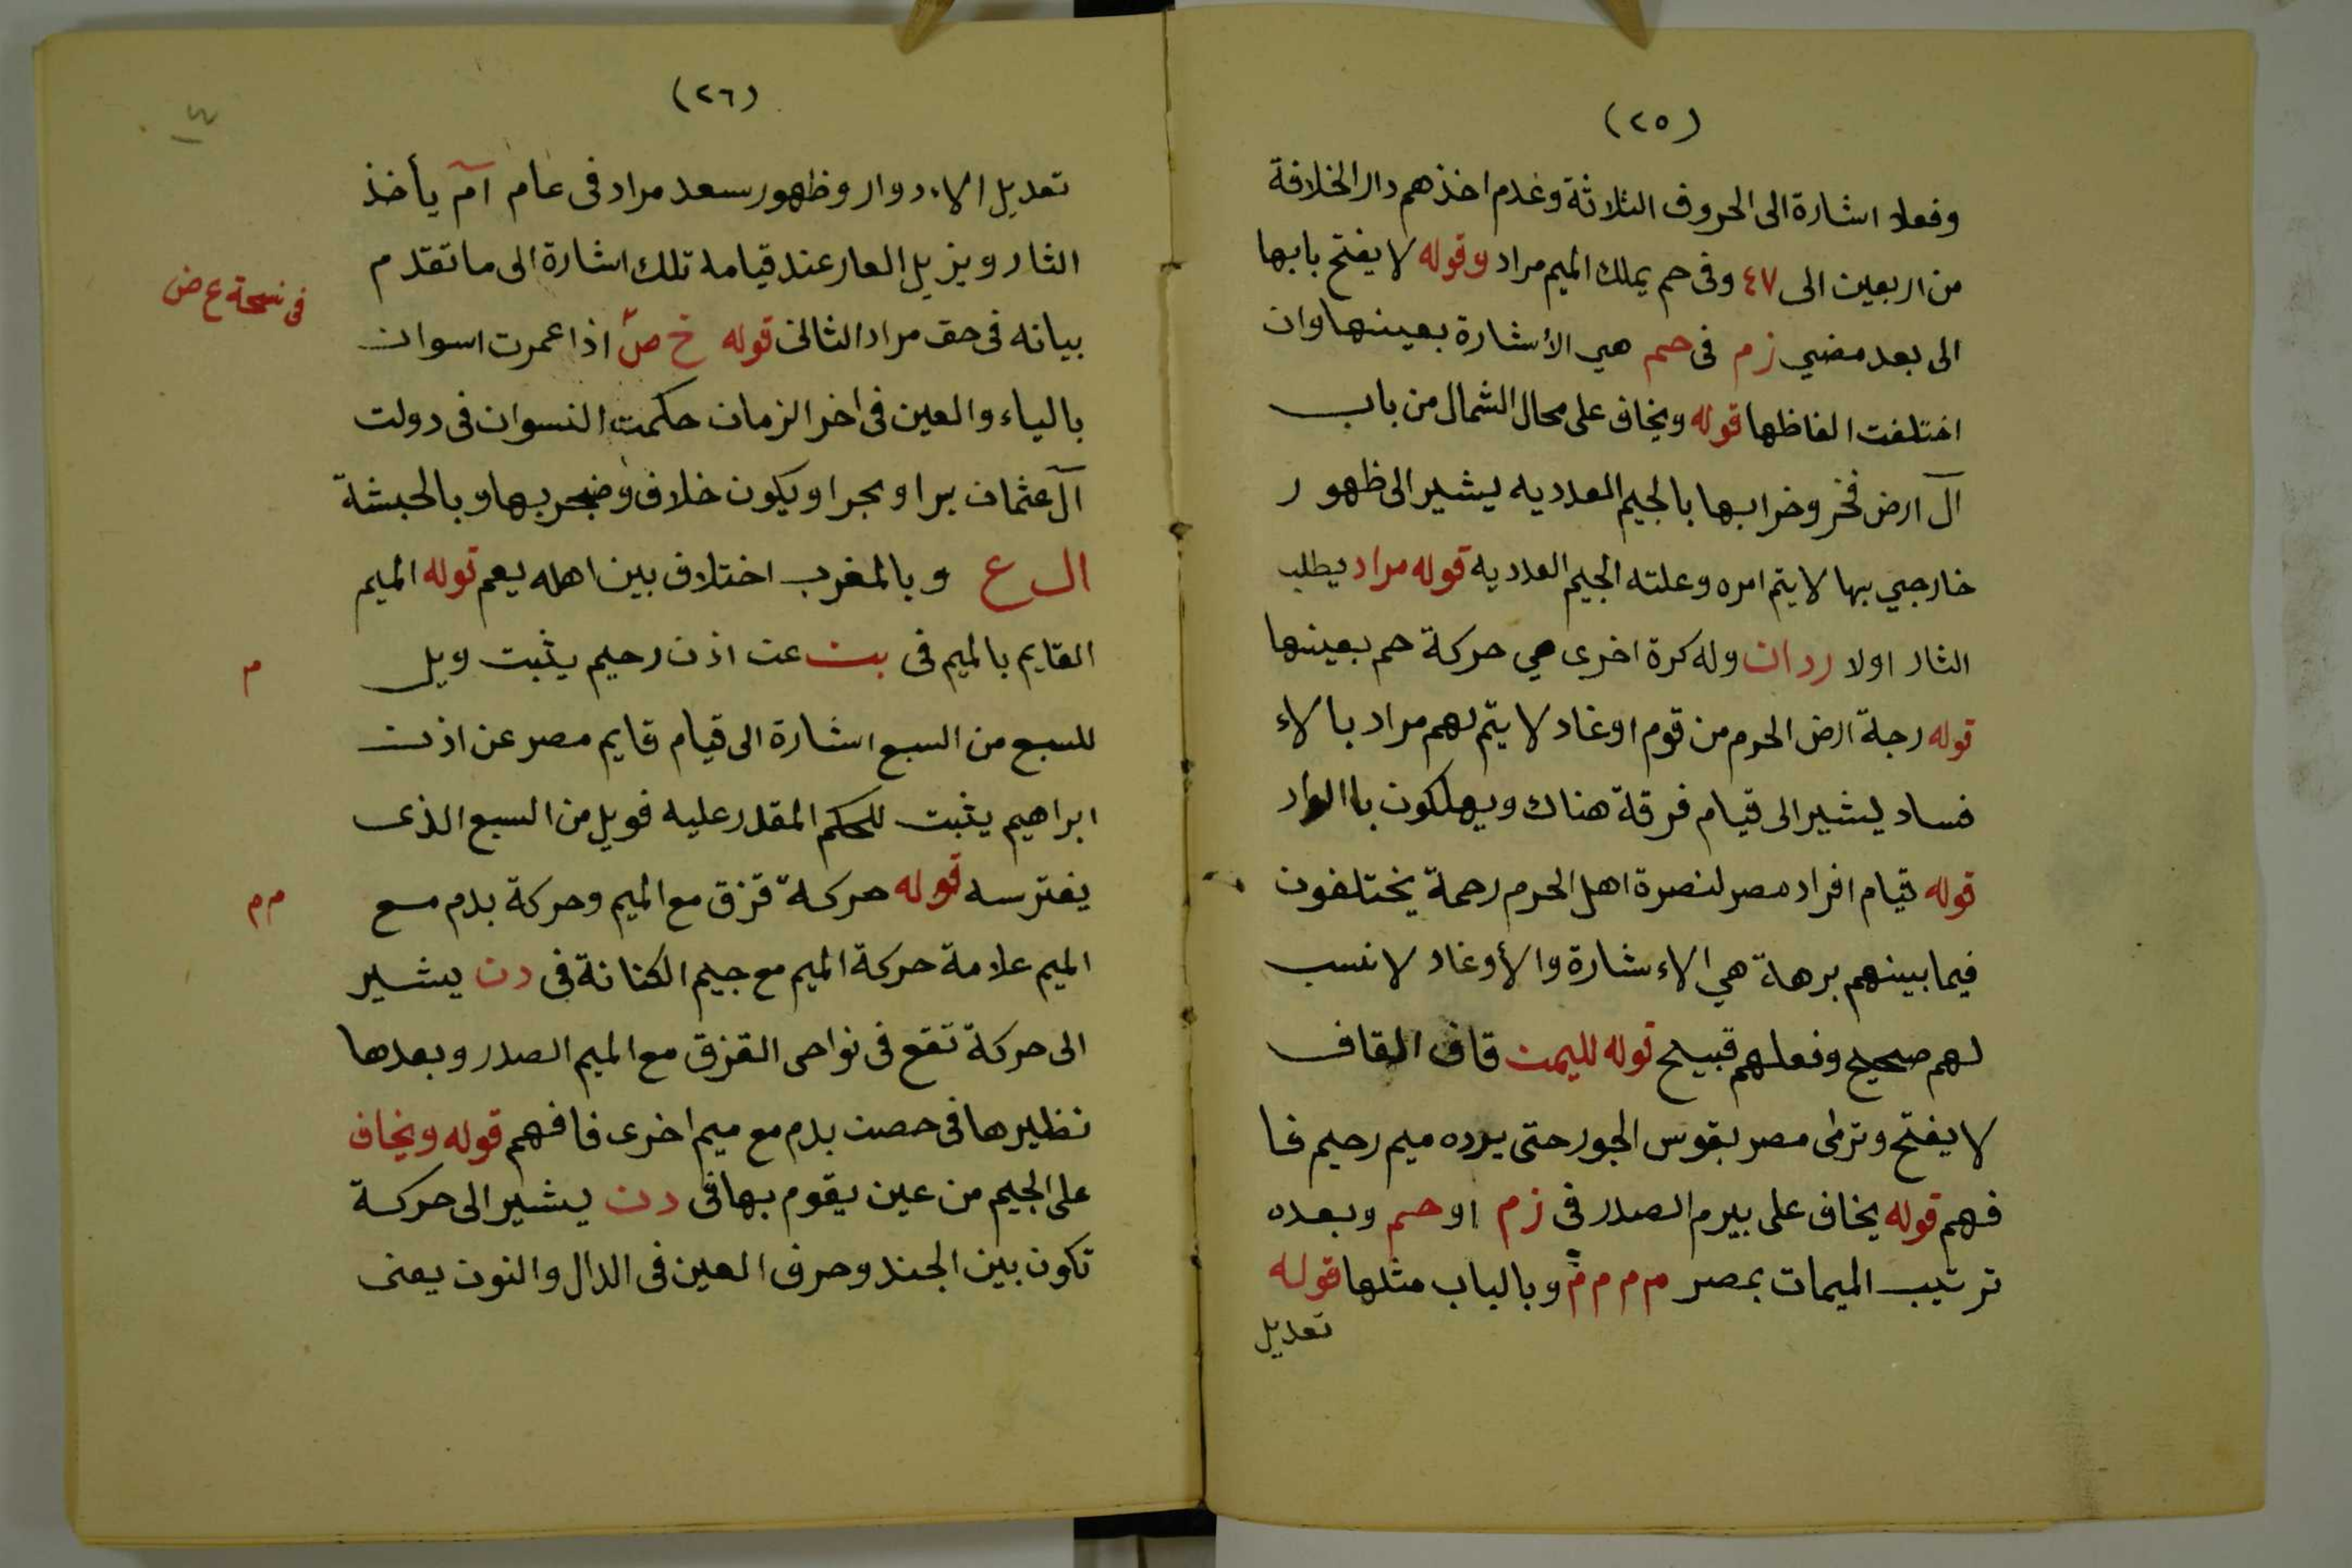 (٢٥)
وفعلا اشارة الى الحروف الثلاثة وغدم اخذهم دار الخلافة
من اربعين الى ٤٧ وفى حم يملك الميم مراد وقوله لا يفتح بابها
الى بعد مضي زم فى حم هي الأشارة بعينها وان
اختلفت الفاظها قوله ويخاف على محال الشمال من باب
آل ارض فخر وخرابها بالجيم العدديه يشير الى ظهور
خارجي بها لا يتم امره وعلته الجيم العدديه قوله مراد يطلب
الثار اولا ردان وله كرة اخرى هي حركة حم بعينها
قوله رجلة ارض الحرم من قوم اوغاد لا يتم لهم مراد بالاء
فساد يشير الى قيام فرقة هناك ويهلكون باالواد
قوله قيام افراد مصر لنصرة اهل الحرم رحمة يختلفون
فيما بينهم برهة هي الاءشارة والأوغاد لا نسب
لهم صحيح وفعلهم قبيح قوله لليمن قاف القاف
لا يفتح وترمى مصر بقوس الجور حتى يرده ميم رحيم فا
فهم قوله يخاف على بيرم الصدر فى زم او حم وبعده
ترتيب الميمات بمصر م م م م م وبالباب مثلها قوله
تعديل
(٢٦)
تعديل الاءدوار وظهور سعد مراد فى عام آم يأخذ
الثار ويزيل العار عند قيامه تلك اشارة الى ما تقدم
فى نسخة ع ض
بيانه فى حق مراد الثانى قوله خ ص اذا عمرت اسوان
بالياء والعين فى اخر الزمان حكمت النسوان فى دولت
آل عثمان برا وبحرا ويكون خلاف وضجر بها وبالحبشة
ال ع وبالمغرب اختلاف بين اهله يعم قوله الميم
القايم بالميم فى بن عن اذن رحيم يثبت ويل
م
للسبع من السبع اشارة الى قيام قايم مصر عن اذن
ابراهيم يثبت للحكم المقدر عليه فويل من السبع الذى
يفترسه قوله حركة قزق مع الميم وحركة بدم مع
م م
الميم علامة حركة الميم مع جيم الكنانة فى دن يشير
الى حركة تقع فى نواحى القزق مع الميم الصدر وبعدها
نظيرها فى حصن بدم مع ميم اخرى فافهم قوله ويخاف
على الجيم من عين يقوم بها فى دن يشير الى حركة
تكون بين الجند وحرف العين فى الدال والنون يعنى